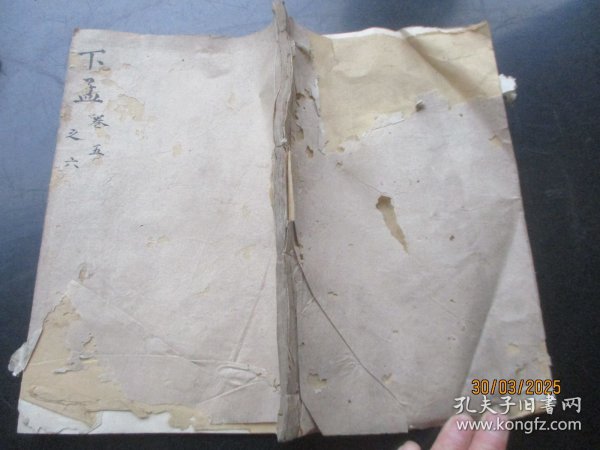 下孟
卷五
之六
30/03/2025
孔夫子旧書网
www.kongfz.com